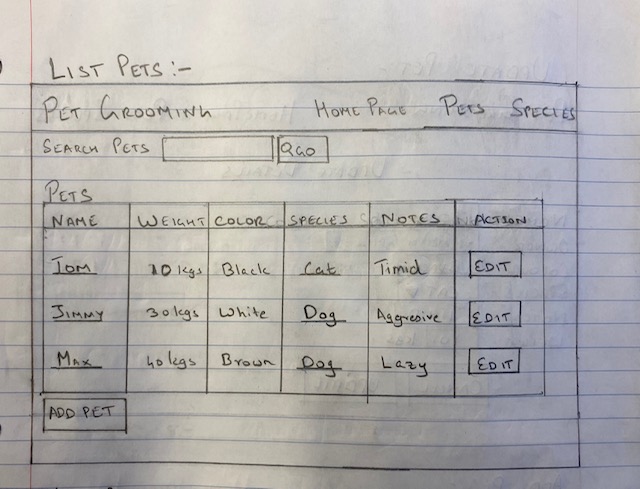 LIST PETS :-
PET GROOMING HOME PAGE PETS SPECIES
SEARCH PETS GO
PETS
NAME WEIGHT COLOR SPECIES NOTES ACTION
TOM 10 kgs Black Cat Timid EDIT
JIMMY 30 kgs White Dog Aggresive EDIT
MAX 40 kgs Brown Dog Lazy EDIT
ADD PET